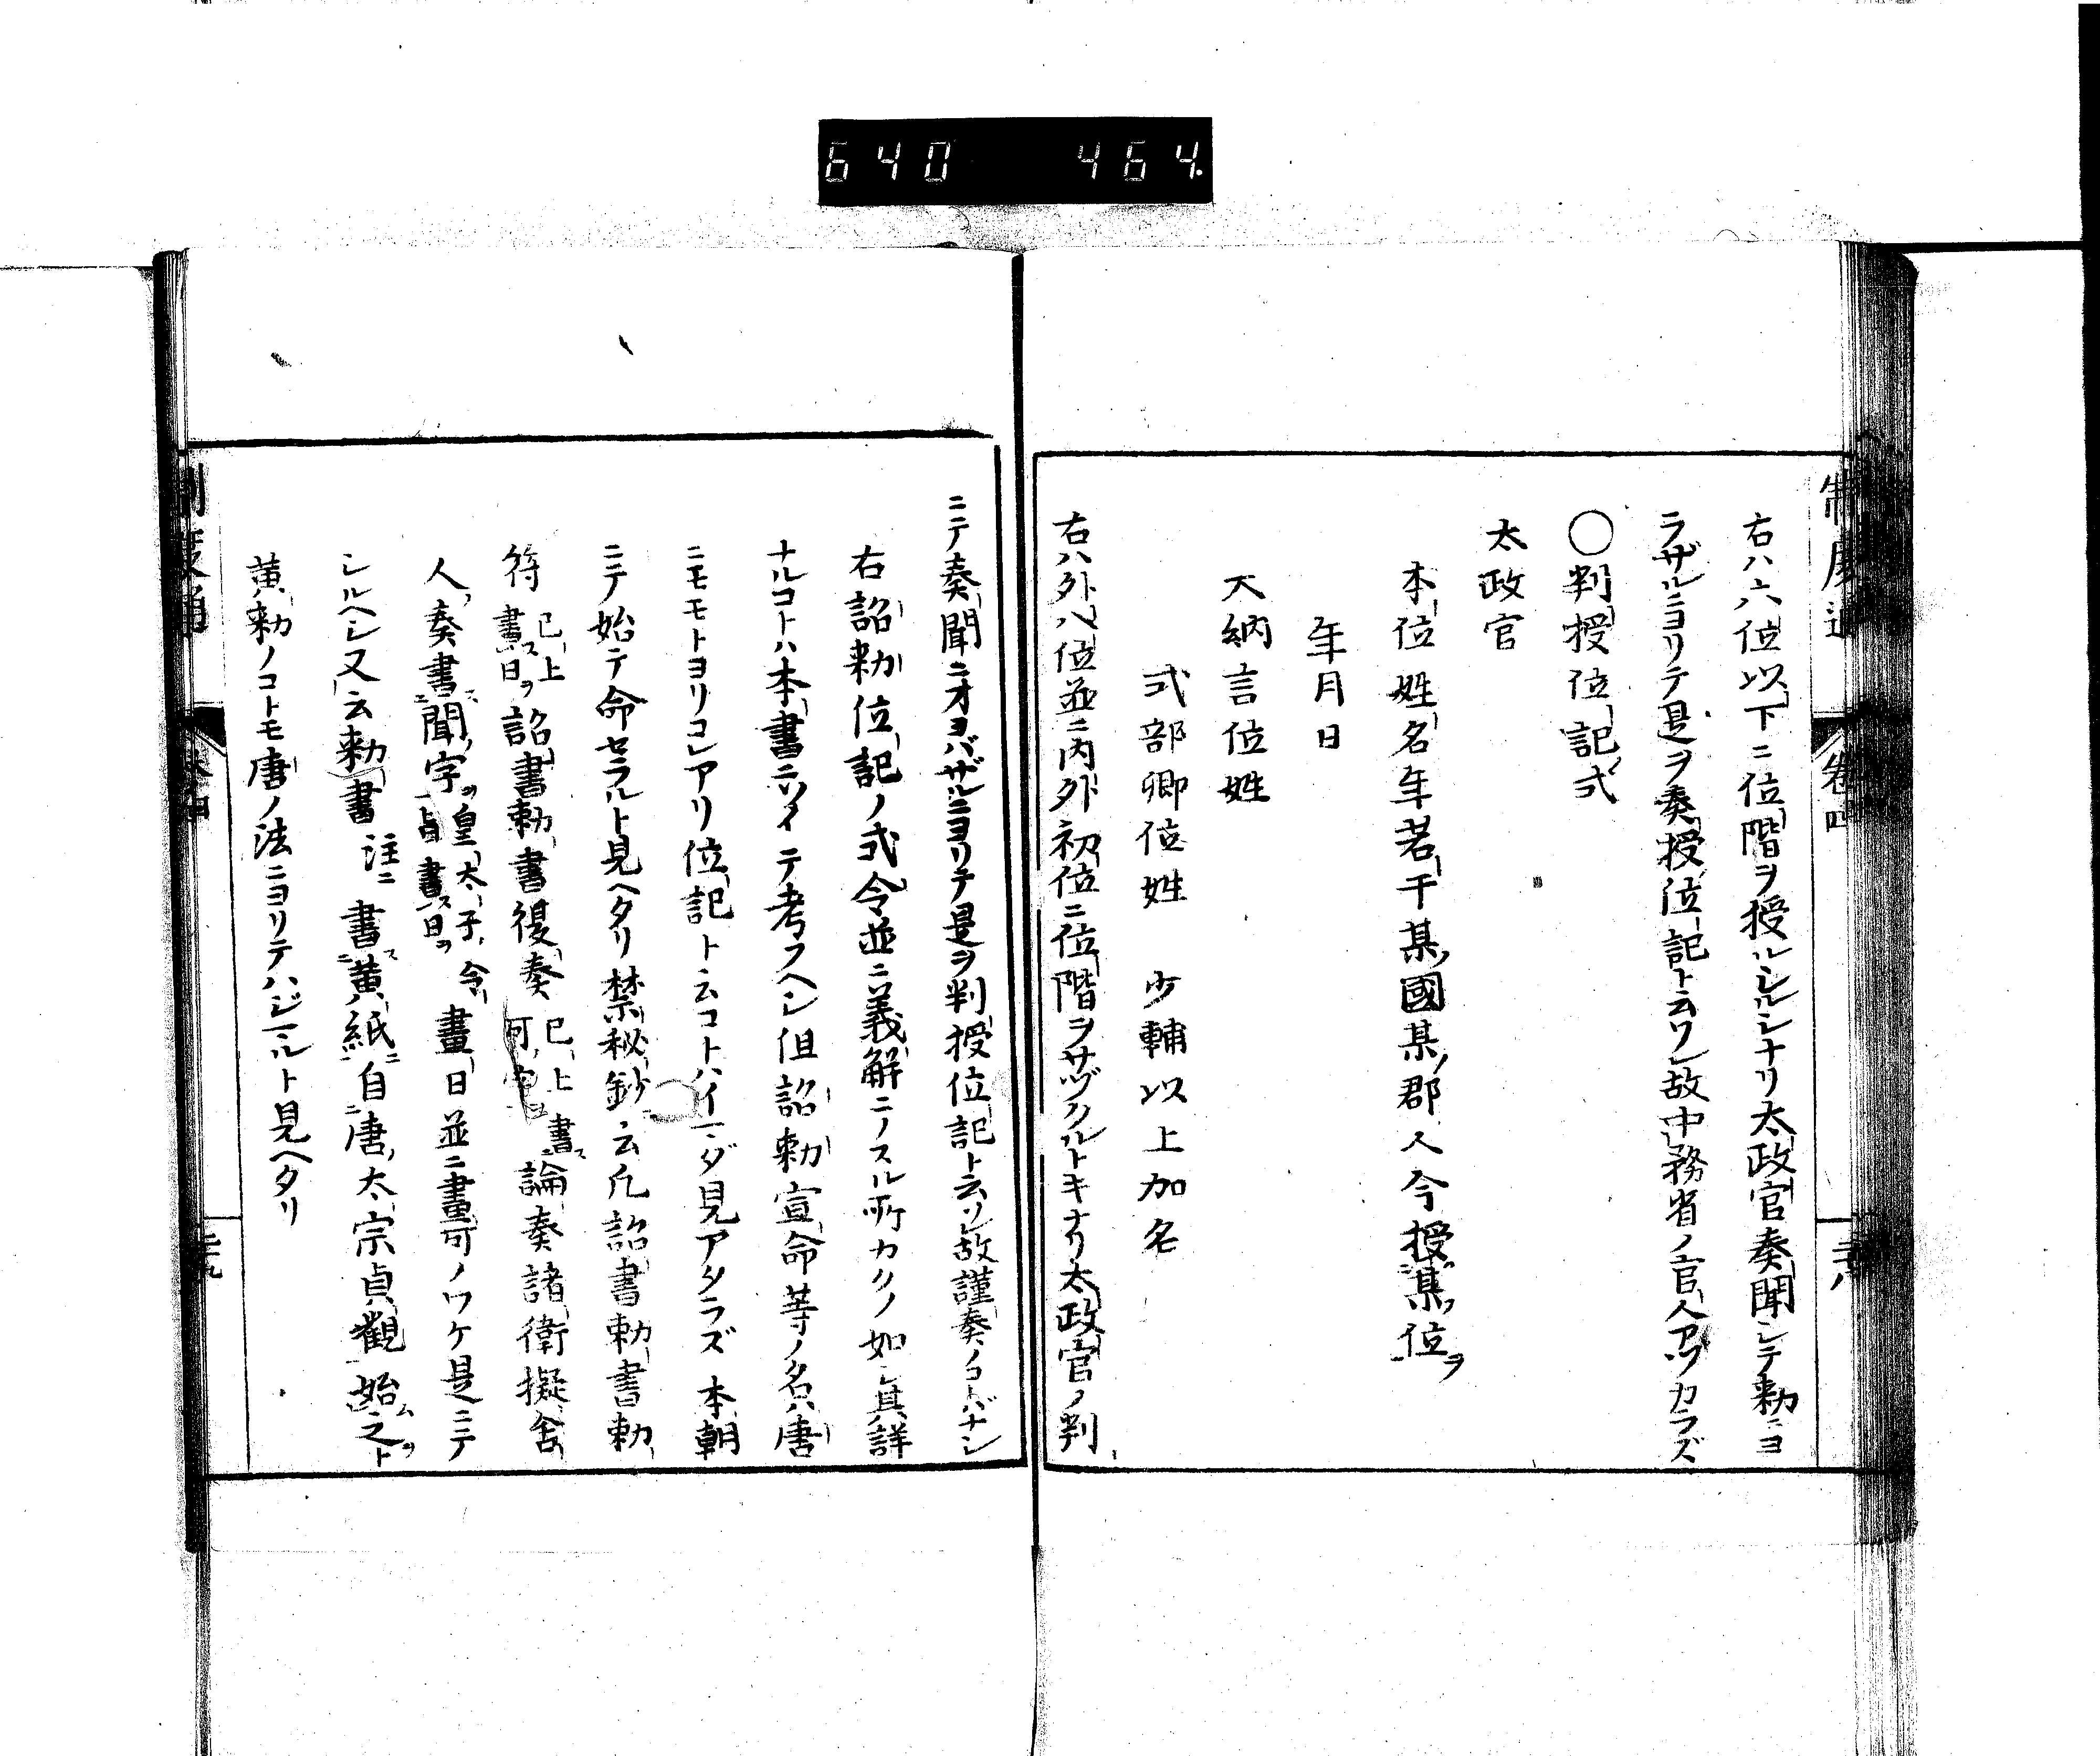 640 464.
制度通 卷四 三十八
右ハ六位以下ニ位階ヲ授ルシルシナリ太政官奏聞シテ勅ニヨ
ラザルニヨリテ是ヲ奏授位記ト云ソレ故中務省ノ官人アヅカラズ
〇判授位記式
太政官
本位姓名年若干某國某郡人今授某位ヲ
年月日
大納言位姓
式部卿位姓 少輔以上加名
右ハ外八位並ニ内外初位ニ位階ヲサヅクルトキナリ太政官ノ判
ニテ奏聞ニオヨバザルニヨリテ是ヲ判授位記ト云ソレ故謹奏ノコトバナシ
右詔勅位記ノ式令並ニ義解ニノスル所カクノ如シ其詳
ナルコトハ本書ニツイテ考フヘシ但詔勅宣命等ノ名ハ唐
ニモモトヨリコレアリ位記ト云コトハイマダ見アタラズ本朝
ニテ始テ命セラルト見ヘタリ禁秘鈔ニ云凡詔書勅書勅
符 已上書日ヲ 詔書勅書復奏 已上書可字 論奏諸衛擬舎
人奏書聞字ヲ皇太子令書日ヲ 畫日並ニ畫可ノワケ是ニテ
シルヘシ又云勅書 注ニ 書黄紙自唐太宗貞觀始之ト
黄勅ノコトモ唐ノ法ニヨリテハジマルト見ヘタリ
制度通 卷四 三十九